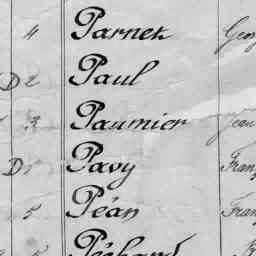 4 Parnek Geo
D 2 Paul
3 Paumier Jean
D Pavy Franç
5 Péan Fran
5 Péchard